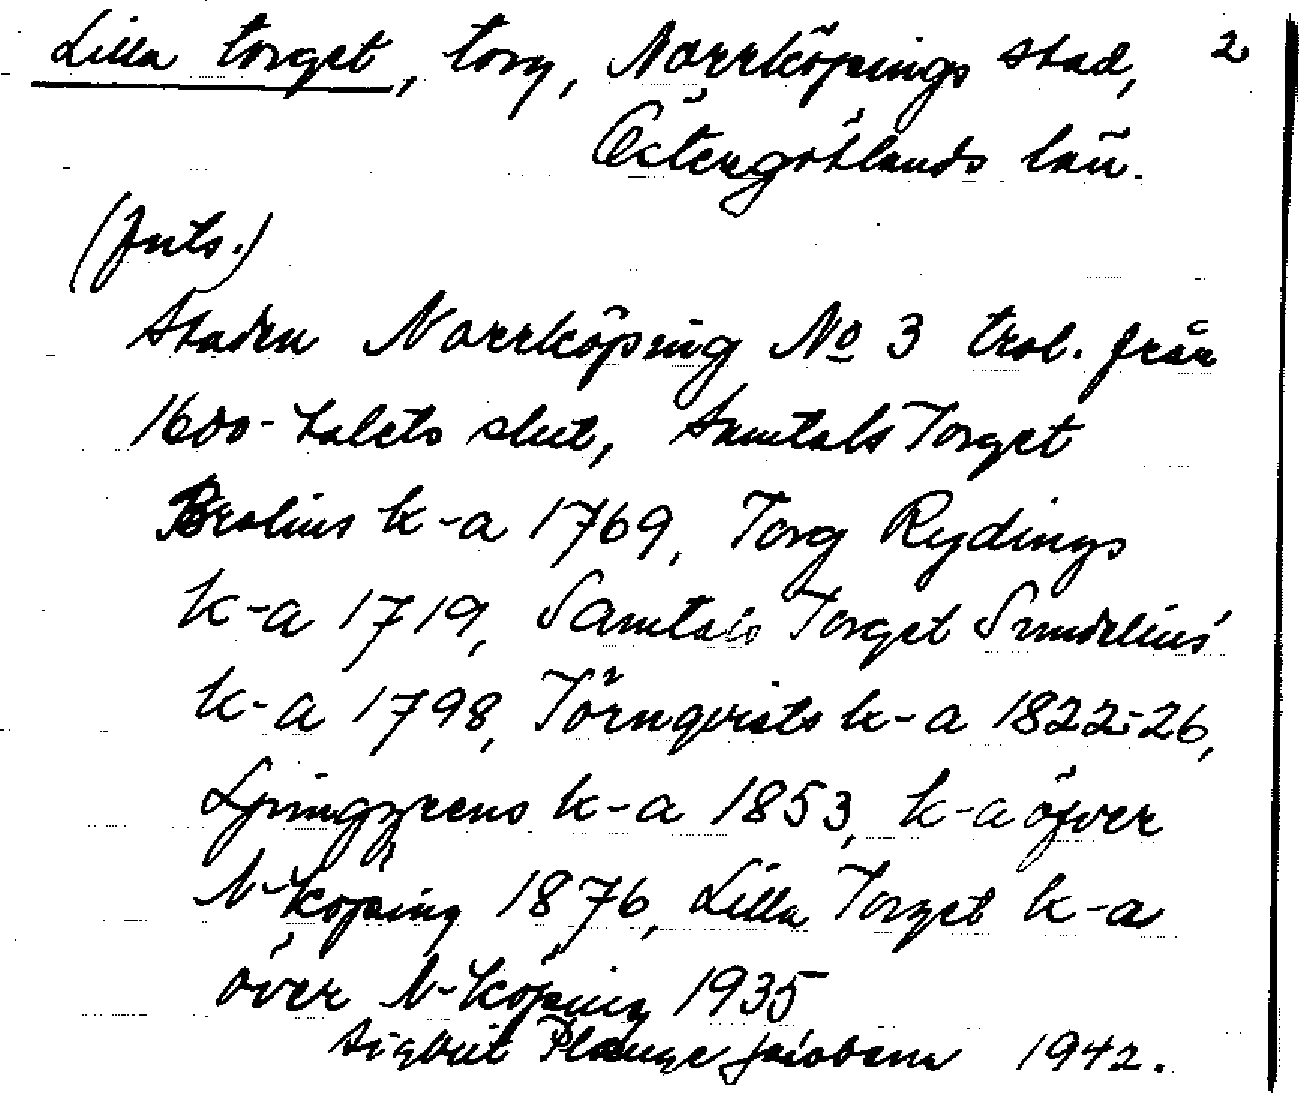 Lilla torget, torg, Norrköpings stad, 2
Östergötlands län.
(forts.)
Staden Norrköping No 3 trol. från
1600-talets slut, Samtals Torget
Brolins k-a 1769, Torg Rydings
k-a 1719, Samtals Torget Sundelius'
k-a 1798, Törnqvists k-a 1822-26,
Ljunggrens k-a 1853, k-a öfver
N-köping 1876, Lilla Torget k-a
över N-köping 1935
Sigbrit Plænge Jacobson 1942.